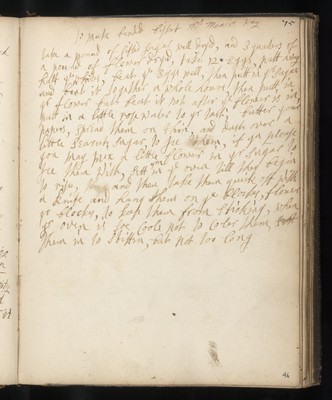 To make bisket Mr Moores way 75
take a pound of sifted Sugar well dryd, and 3 quarters of
a pound of flower dryd, take 12 Eggs, putt away
halfe ye whites, beat ye Eggs well, then putt in ye Sugar
and beat it together a whole houre, then putt in
ye flower but beat it not after ye flower is in,
putt in a little rose water to yr tast, butter your
papers, spread them on thin, and dust over a
little Searced Sugar, to Ice them, if you please
you may put a little flower in ye Sugar to
Ice them with, sett in ye oven till they begin
to rise, and then take them quick of with
a knife and hang them on ye Clocks, flower
ye Clocks, to keep them from sticking, when
ye oven is soe Coole not to Coler them,
them in to stiffen, but not too long
46